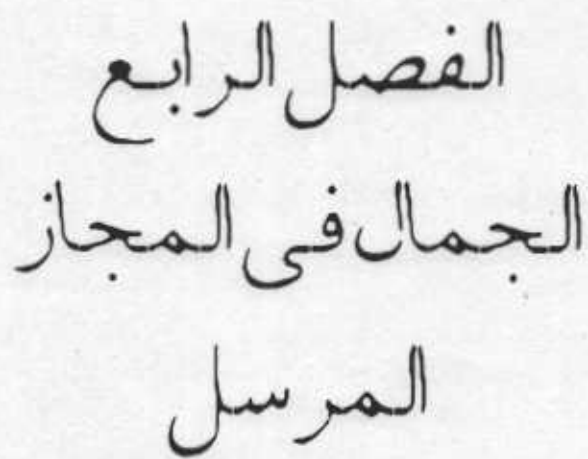 الفصل الرابع
الجمال فى المجاز
المرسل